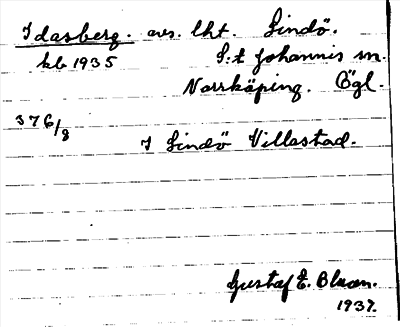 Idasberg. avs. lht. Lindö.
kb 1935 S:t Johannis sn.
Norrköping. Ögl.
376/8
I Lindö Villastad.
Gustaf E. Blman.
1937.